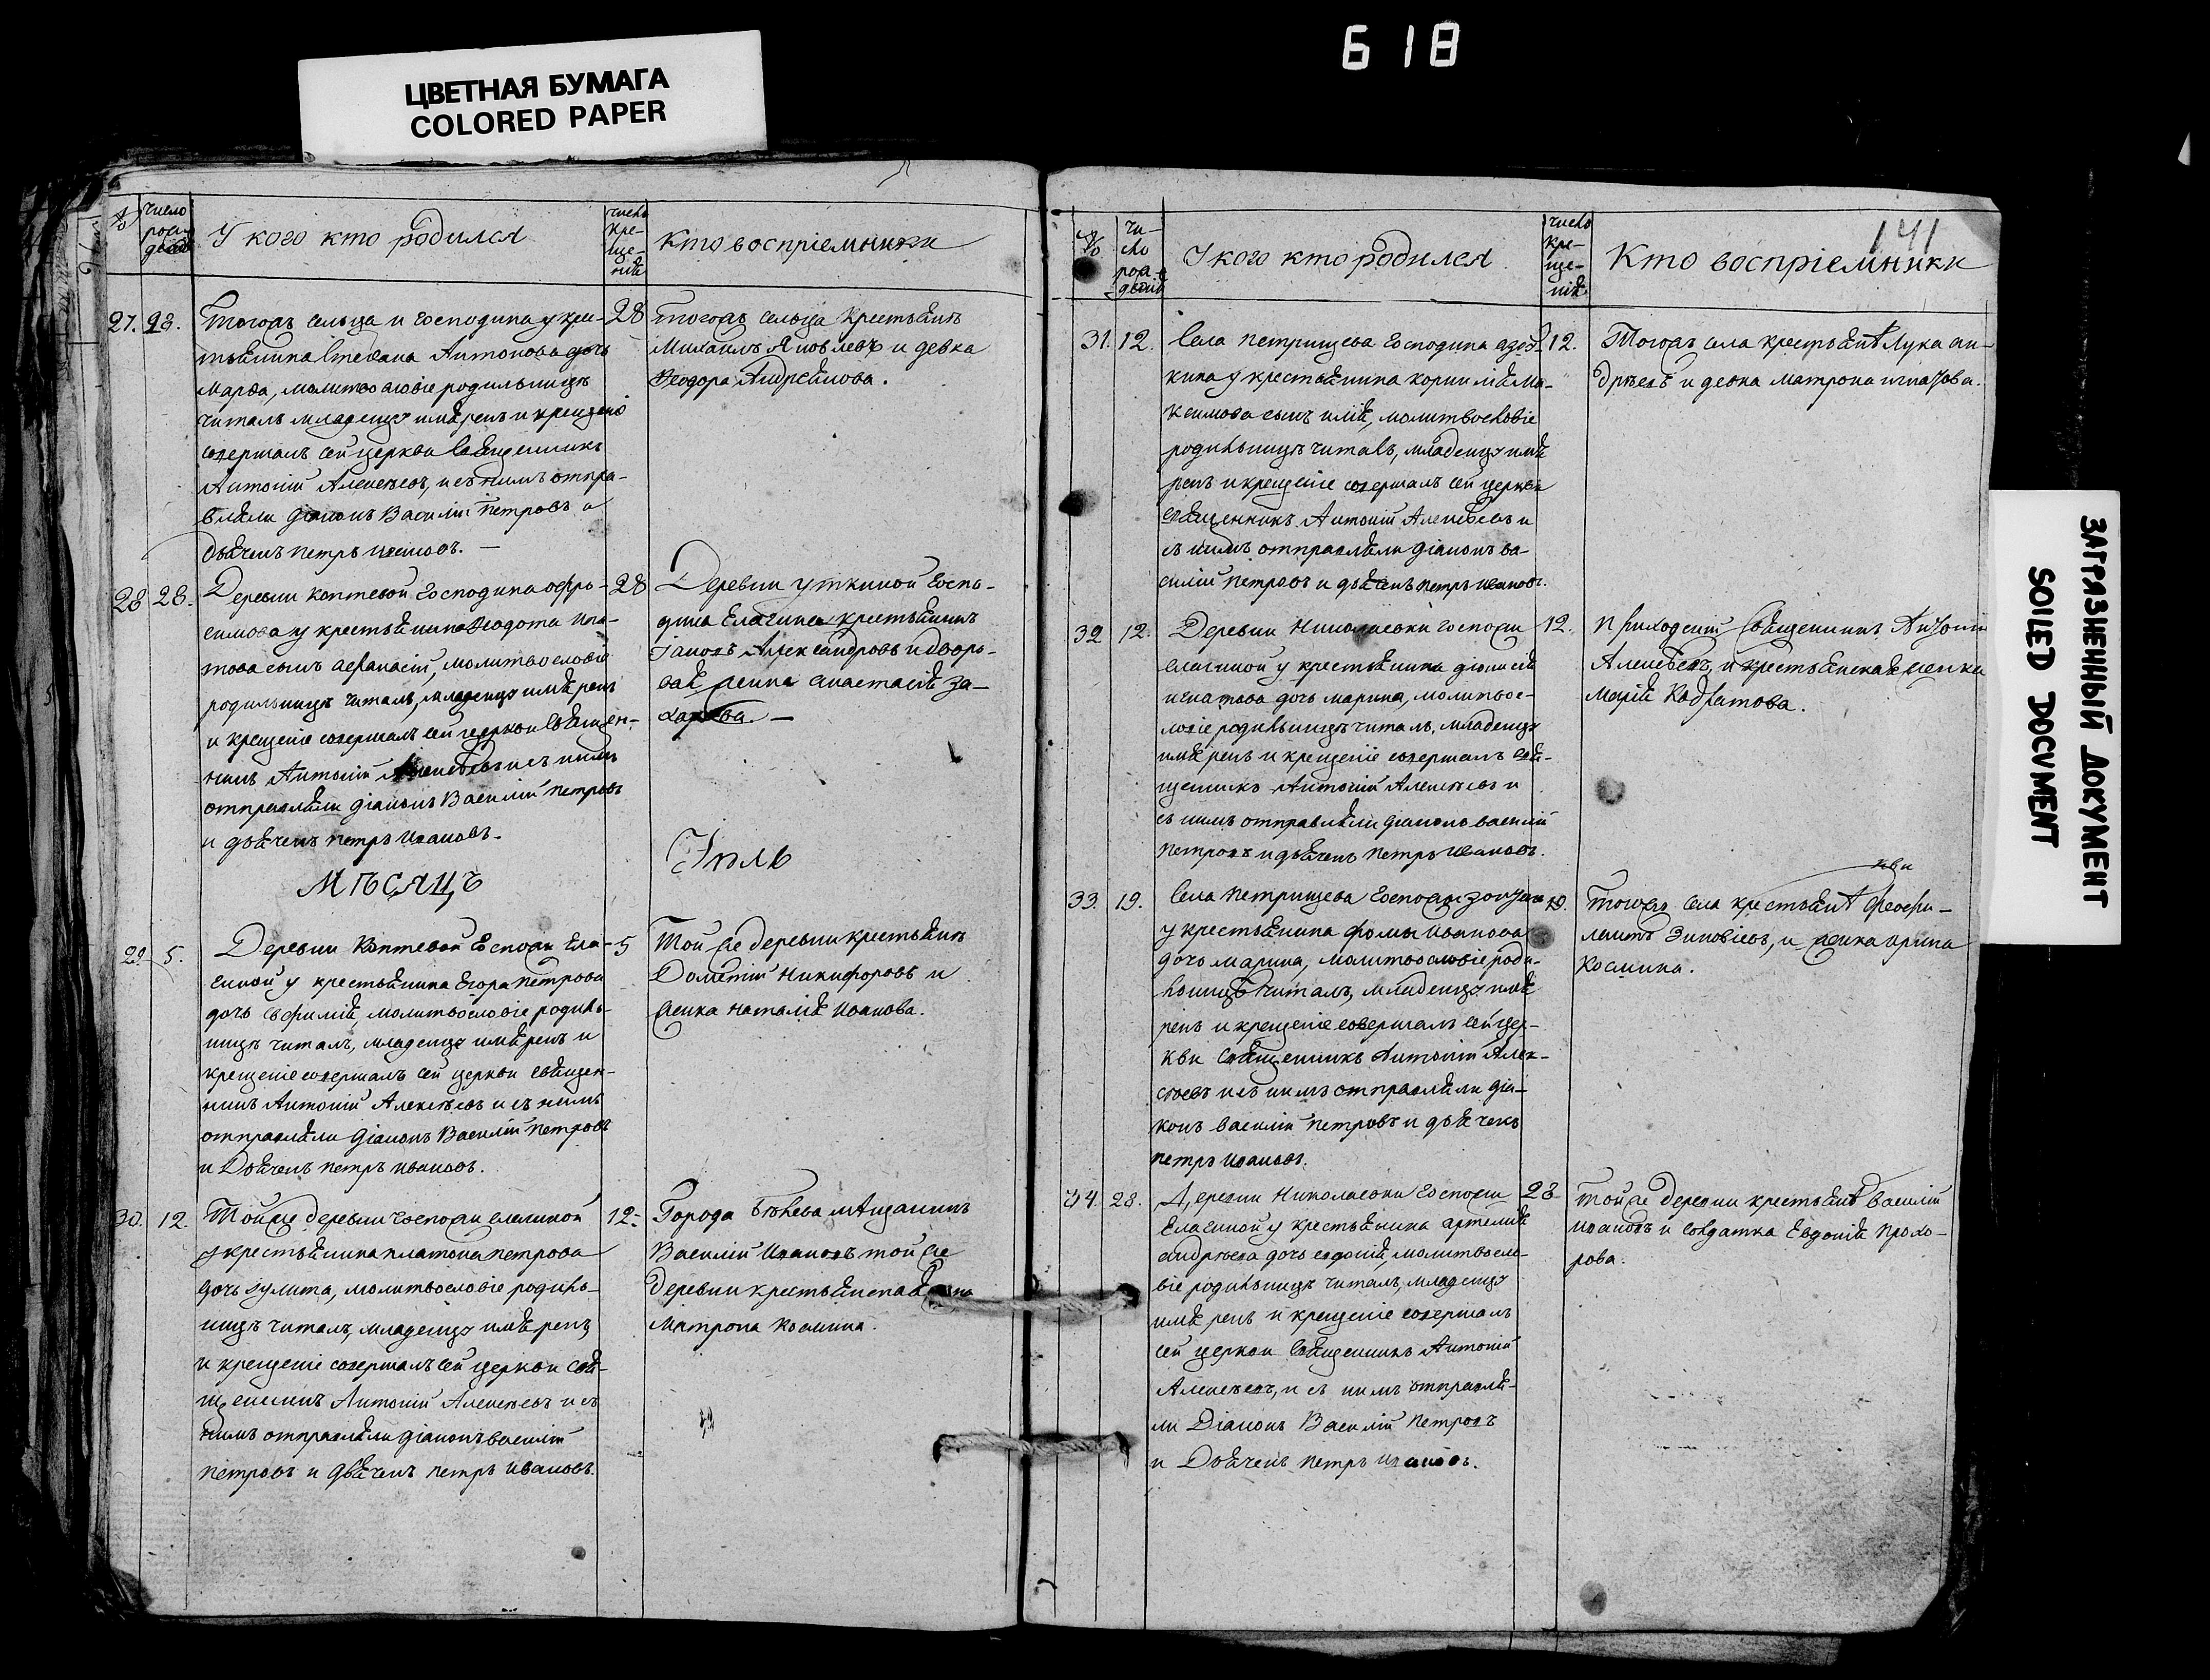 618
ЦВЕТНАЯ БУМАГА
COLORED PAPER
№
число рож деній
У кого кто родился
число кре- ще- нія
Кто воспріемники
27. 28.
Тогожъ сельца и господина у кре-
стьянина Стефана Антонова дочь
Марфа, молитвословіе родильницѣ
читалъ младенцу имя рекъ и крещеніе
совершалъ сей церкви священникъ
Антоній Алексѣевъ, и съ нимъ отпра-
вляли діаконъ Василій Петровъ и
дьячекъ Петръ Ивановъ. —
28
Тогожъ сельца крестьянинъ
Михаилъ Яковлевъ и девка
Феодора Андреянова.
28 28.
Деревни Коптевой господина Офро-
симова у крестьянина Феодота Игна-
това сынъ Афанасій, молитвословіе
родильницѣ читалъ, младенцу имя рекъ
и крещеніе совершалъ сей церкви священ-
никъ Антоній Алексѣевъ и съ нимъ
отправляли діаконъ Василій Петровъ
и дьячекъ Петръ Ивановъ.
28
Деревни Уткиной госпо-
дина Елагина крестьянинъ
Іаковъ Александровъ и дворо-
вая женка Анастасія За-
харова. —
МѢСЯЦЪ
Іюль
29 5.
Деревни Коптевой госпожи Ела-
гиной у крестьянина Егора Петрова
дочь Евфимія, молитвословіе родиль-
ницѣ читалъ, младенцу имя рекъ и
крещеніе совершалъ сей церкви священ-
никъ Антоній Алексѣевъ и съ нимъ
отправляли діаконъ Василій Петровъ
и Дьячекъ Петръ Ивановъ.
5
Той же деревни крестьянинъ
Дометій Никифоровъ и
женка Наталія Иванова.
30. 12.
Той же деревни госпожи Елагиной
у крестьянина Платона Петрова
дочь Іулита, молитвословіе родиль-
ницѣ читалъ, младенцу имя рекъ
и крещеніе совершалъ сей церкви свя-
щенникъ Антоній Алексѣевъ и съ
нимъ отправляли діаконъ Василій
Петровъ и дьячекъ Петръ Ивановъ.
12.
Города Бѣлева мѣщанинъ
Василій Ивановъ той же
деревни крестьянская
Матрона Космина.
№
чи- сло рож- деній
У кого кто родился
число кре- ще- нія
141
Кто воспріемники
31. 12.
Села Петрищева господина
кина у крестьянина Корнилія Ма-
ксимова сынъ Илія, молитвословіе
родильницѣ читалъ, младенцу имя
рекъ и крещеніе совершалъ сей церкви
священникъ Антоній Алексѣевъ и
съ нимъ отправляли діаконъ Ва-
силій Петровъ и дьячекъ Петръ Ивановъ.
12.
Тогожъ села крестьянинъ Лука Ан-
дрѣевъ и девка Матрона Игнатова.
32 12.
Деревни Николаевки госпожи
Елагиной у крестьянина Діонисія
Игнатова дочь Марина, молитвос-
ловіе родильницѣ читалъ, младенцу
имя рекъ и крещеніе совершалъ свя-
щенникъ Антоній Алексѣевъ и
съ нимъ отправляли діаконъ Василій
Петровъ и дьячекъ Петръ Ивановъ.
12.
Приходскій священникъ Антоній
Алексѣевъ, и крестьянская женка
Марія Кодратова.
33. 19.
Села Петрищева госпожи
у крестьянина Фомы Иванова
дочь Марина, молитвословіе роди-
льницѣ читалъ, младенцу имя
рекъ и крещеніе совершалъ сей цер-
кви священникъ Антоній Алек-
сѣевъ и съ нимъ отправляли діа-
конъ Василій Петровъ и дьячекъ
Петръ Ивановъ.
19.
Тогожъ села крестьянинъ Феофи-
лактъ Зиновіевъ, и женка Ирина
Космина.
34. 28.
Деревни Николаевки госпожи
Елагиной у крестьянина Артемія
Андрѣева дочь Евдокія, молитвосло-
віе родильницѣ читалъ, младенцу
имя рекъ и крещеніе совершалъ
сей церкви священникъ Антоній
Алексѣевъ, и съ нимъ отправля-
ли Діаконъ Василій Петровъ
и Дьячекъ Петръ Ивановъ.
28
Той же деревни крестьянинъ Василій
Ивановъ и солдатка Евдокія Прохо-
рова.
ЗАГРЯЗНЕННЫЙ ДОКУМЕНТ
SOILED DOCUMENT